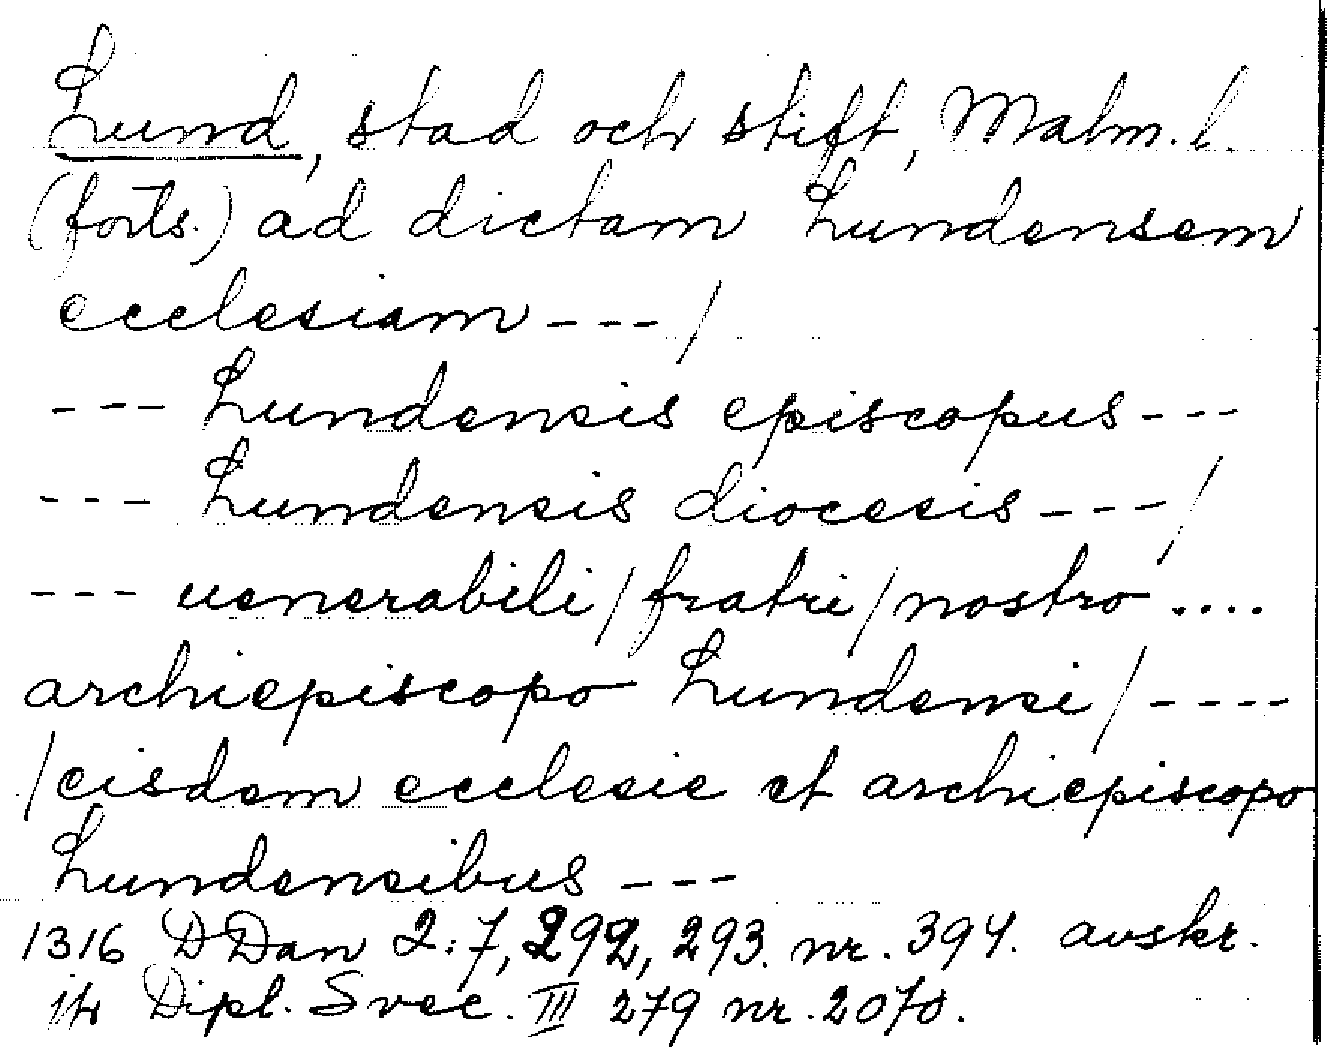 Lund, stad och stift, Malm. l.
(forts.) ad dictam Lundensem
ecclesiam --- /
--- Lundensis episcopus ---
--- Lundensis diocesis --- /
--- uenerabili / fratri / nostro ....
archiepiscopo Lundensi / ----
/ eisdem ecclesie et archiepiscopo
Lundensibus ---
1316 DDan 2:7, 292, 293. nr. 394. avskr.
jfr Dipl. Svec. III 279 nr. 2070.